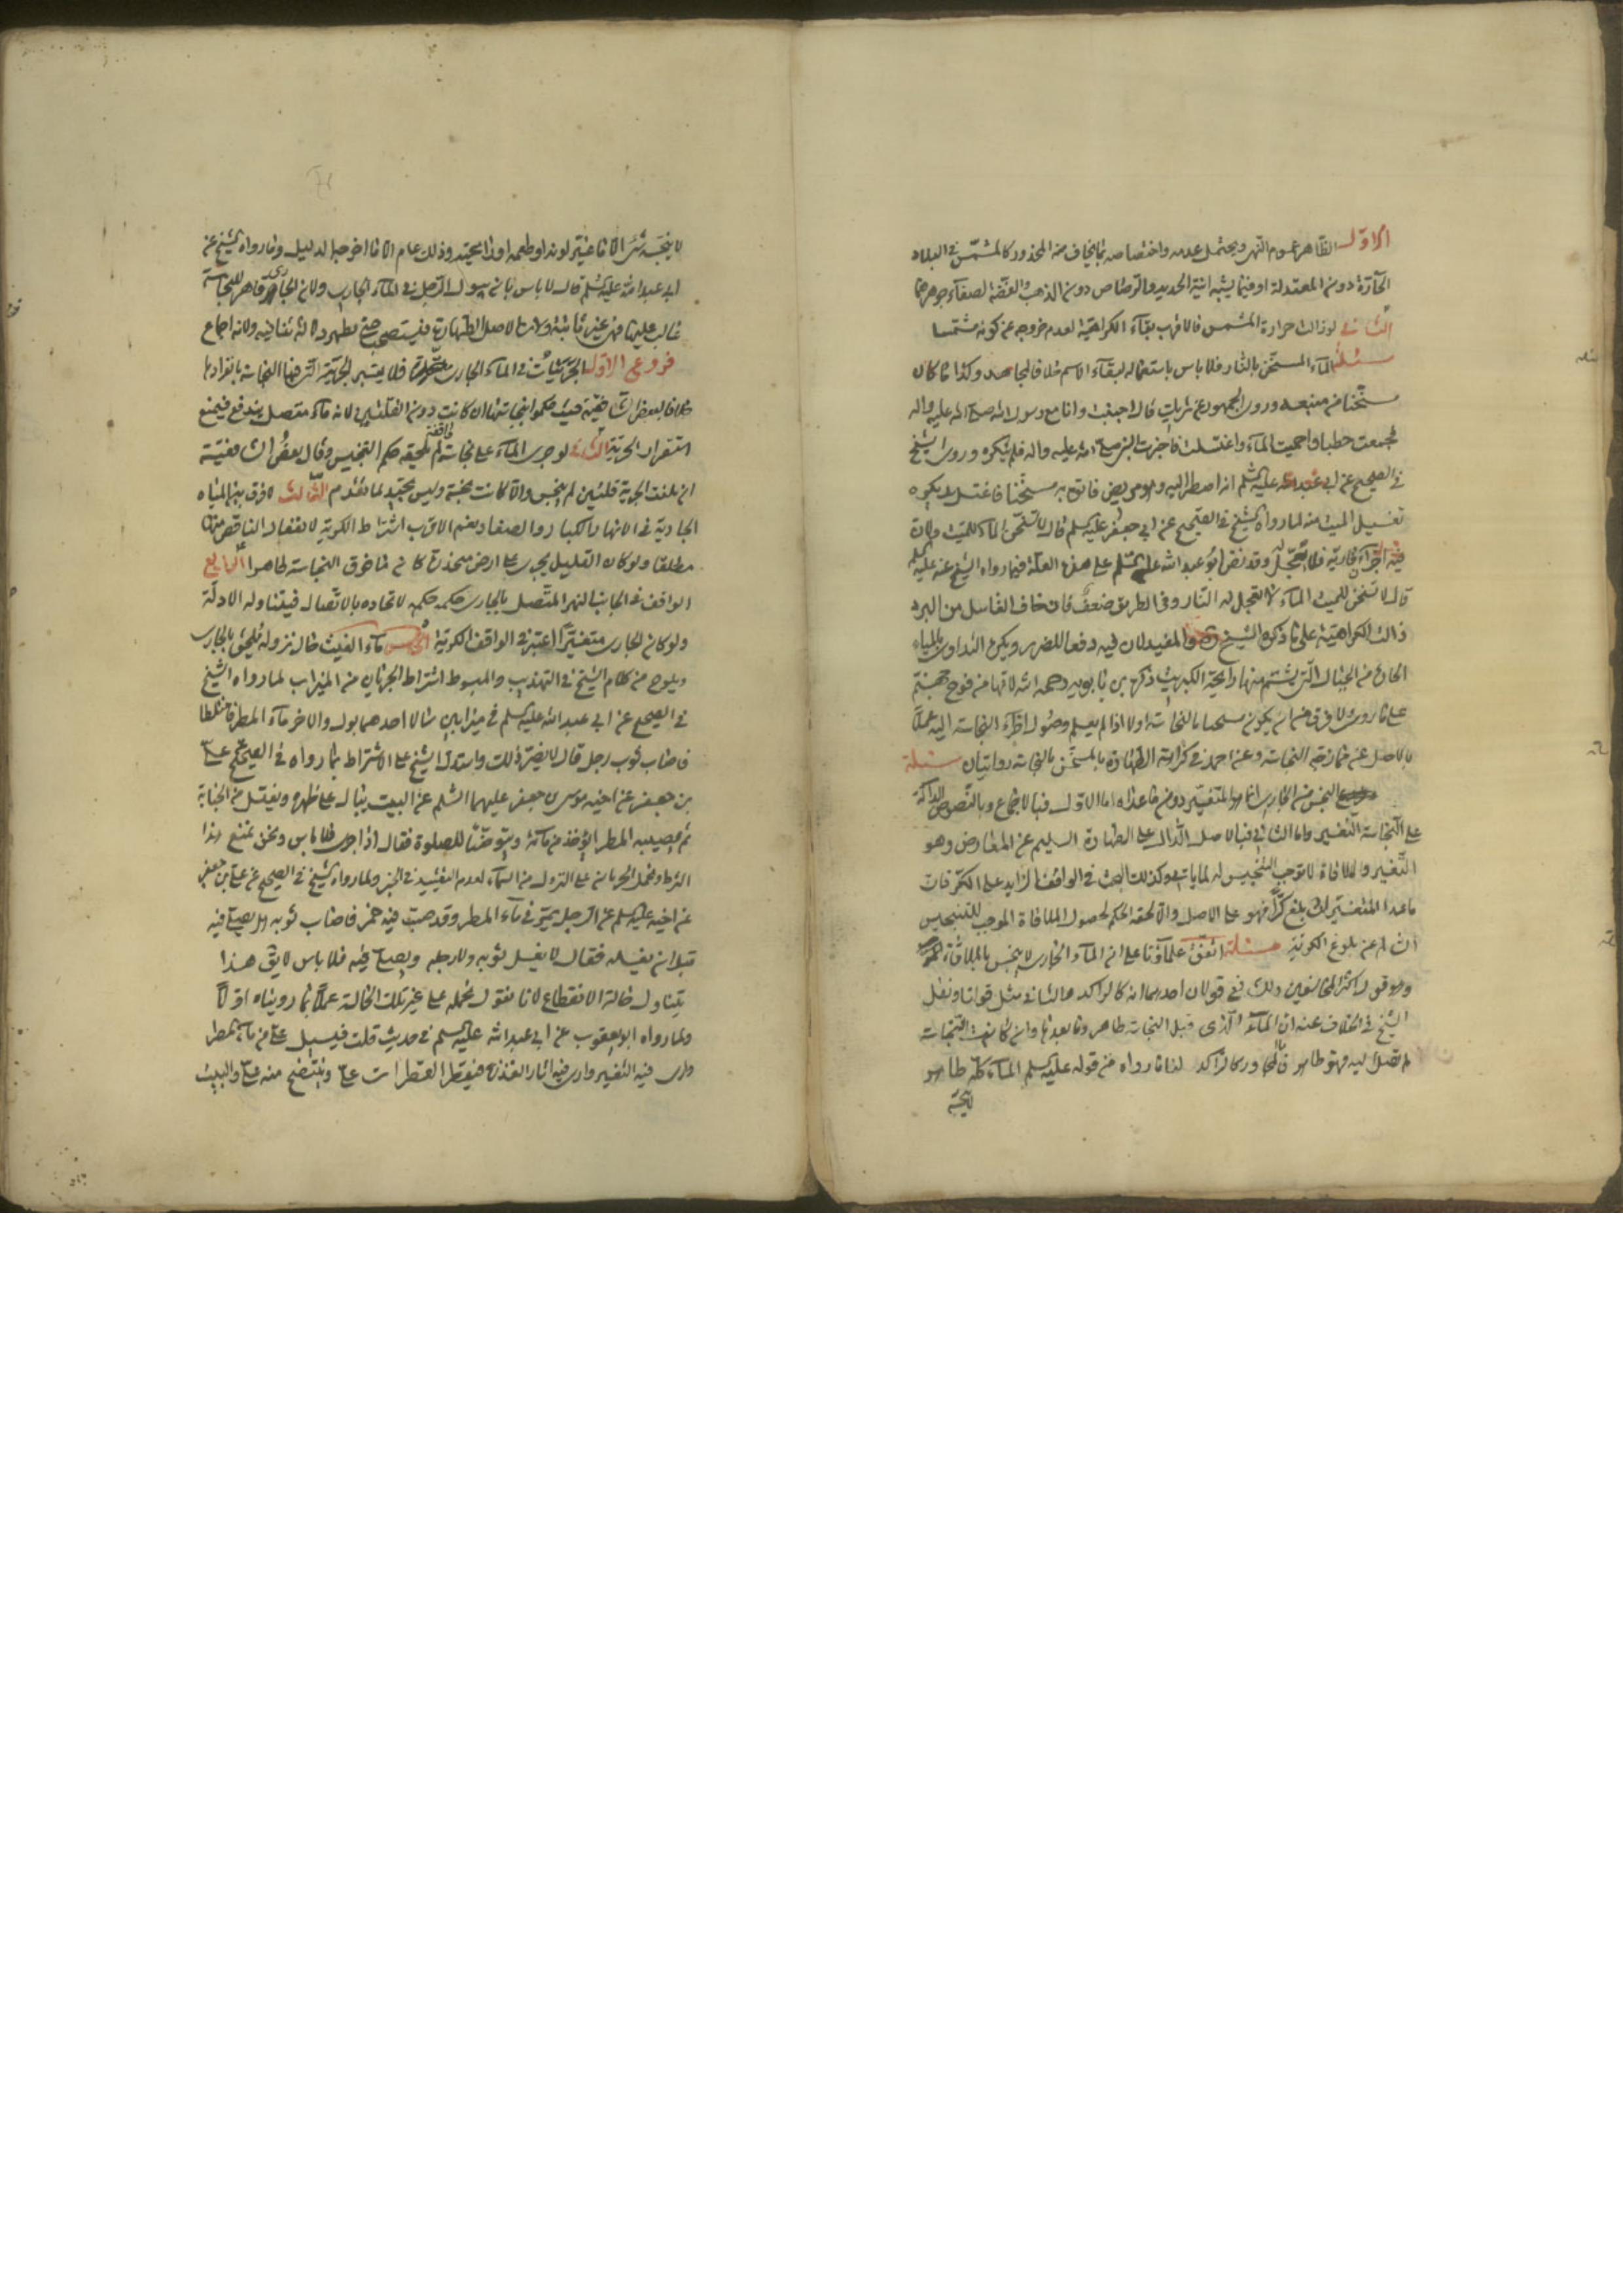 الاول الظاهر عموم النهي ويحتمل عدمه واختصاصه بما يخاف منه المحذور كالمشمس في البلاد
الحارة دون المعتدلة او فيما يشبه انية الحديد والرصاص دون الذهب والفضة لصفاء جوهرهما
الثاني لو زالت حرارة المشمس فالاقرب بقاء الكراهية لعدم خروجه عن كونه مشمسا
مسئلة الماء المسخن بالنار فلا باس باستعماله لبقاء الاسم خلافا لمجاهد وكذا ما كان
مسخنا من منبعه وروى الجمهور عن شريك قال اجنبت وانا مع رسول الله صلى الله عليه واله
فجمعت حطبا واحميت الماء واغتسلت فاخبرت النبي صلى الله عليه واله فلم ينكره وروى الشيخ
في الصحيح عن ابي عبد الله عليه السلم انه اضطر اليه وهو مريض فاتوه به مسخنا فاغتسل ويكره
تغسيل الميت منه لما رواه الشيخ في الصحيح عن ابي جعفر عليه السلم قال لا تسخن الماء للميت ولان
فيه اجزاء نارية فلا تعجل له وقد نص ابو عبد الله عليه السلم على هذه العلة فيما رواه الشيخ عنه عليه السلم
قال لا تسخن للميت الماء لا تعجل له النار وفي الطريق ضعف فان خاف الغاسل من البرد
زالت الكراهية على ما ذكره الشيخ والمفيد لان فيه دفعا للضرر ويكره التداوي بالمياه
الحارة من الجبال التي يشتم منها رايحة الكبريت ذكره بن بابويه رحمه الله لانها من فوح جهنم
على ما روى لا فرق من ان يكون مسخنا بالنجاسة اولا اذا لم يعلم وصول اجزاء النجاسة اليه عملا
بالاصل عن ممازجه النجاسة وعن احمد في كراهة الطهارة بالمسخن بالنجاسة روايتان مسئلة
النجس من الجاري انما هو المتغير دون ما عداه اما الاول فبالاجماع وبالنصوص الدالة
على النجاسة التغير واما الثاني فبالاصل الدال على الطهارة السليم عن المعارض وهو
التغير والملاقاة لا توجب التنجيس له لما ياتي وكذلك البحث في الواقف الزايد على الكر فان
ما عدا المتغير ان بلغ كرا فهو على الاصل والا لحقه الحكم لحصول الملاقاة الموجب للتنجيس
السالم عن بلوغ الكرية مسئلة اتفق علماؤنا على ان الماء الجاري لا ينجس بالملاقاة
وهو قول اكثر المخالفين وللشافعي قولان احدهما انه كالراكد والثاني مثل قولنا ونقل
الشيخ في الخلاف عنه ان الماء الذي قبل النجاسة طاهر وما بعدها وان كانت النجاسة
لم تصل اليه فهو طاهر والمجاور كالراكد لنا ما رواه من قوله عليه السلم الماء كله طاهر
لا ينجسه
لا ينجسه شيء الا ما غير لونه او طعمه او رايحته وذلك عام الا ما اخرجه الدليل وما رواه الشيخ عن
ابي عبد الله عليه السلم قال لا باس بان يبول الرجل في الماء الجاري ولان الجاري قاهر للنجاسة
غالب عليها فهي غير ثابتة ولان الاصل الطهارة فيستصحب حتى يظهر دلالة تنافيه ولانه اجماع
فروع الاول الجريات في الماء الجاري فلا يعتبر الجرية التي فيها النجاسة بانفرادها
خلافا لبعض الشافعية حيث حكموا بنجاستها ان كانت دون القلتين لانه ماء متصل يتدفع فيمنع
استقرار الجرية الثاني لو جرى الماء على نجاسة واقفة لم يلحقه حكم التنجيس وقال بعض الشافعية
ان بلغت الجرية قلتين لم ينجس والا كانت نجسة وليس بجيد لما تقدم الثالث لا فرق بين المياه
الجارية في الانهار الكبار والصغار نعم الاقرب اشتراط الكرية لانفعال الناقص عنها
مطلقا ولو كان القليل يجري على ارض منحدرة كان ما فوق النجاسة طاهرا الرابع
الواقف في الجانب النهر المتصل بالجاري حكمه حكمه لاتحاده بالاتصال فيتناوله الادلة
ولو كان الجاري متغيرا اعتبر في الواقف الكرية الخامس ماء الغيث حال نزوله يلحق بالجاري
ويلوح من كلام الشيخ في التهذيب والمبسوط اشتراط الجريان من الميزاب لما رواه الشيخ
في الصحيح عن ابي عبد الله عليه السلم في ميزابين سالا احدهما بول والاخر ماء المطر فاختلطا
فاصاب ثوب رجل قال لا يضر ذلك واستدل الشيخ على الاشتراط بما رواه في الصحيح عن علي
بن جعفر عن اخيه موسى بن جعفر عليهما السلم عن البيت يبال على ظهره ويغتسل من الجنابة
ثم يصيبه المطر ايؤخذ من مائه ويتوضأ للصلوة فقال اذا جرى فلا باس ونحن نمنع هذا
الشرط ونحمل الجريان على النزول من السماء لعدم التقييد في الخبر ولما رواه الشيخ في الصحيح عن علي بن جعفر
عن اخيه عليه السلم عن الرجل يمر في ماء المطر وقد صب فيه خمر فاصاب ثوبه هل يصلي فيه
قبل ان يغسله فقال لا يغسل ثوبه ولا رجله ويصلي فيه فلا باس لا يق هذا
يتناول حالة الانقطاع لانا نقول نحمله على غير تلك الحالة عملا بما رويناه اولا
ولما رواه ابو يعقوب عن ابي عبد الله عليه السلم في حديث قلت فيسيل علي من ماء المطر
وارى فيه التغير وارى فيه اثار القذر فيقطر القطرات علي وينتضح منه علي والبيت